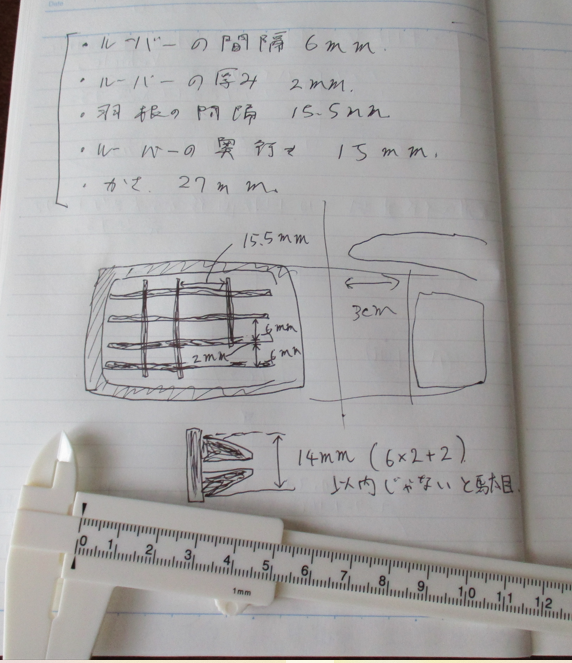 ・ルーバーの間隔 6mm.
・ルーバーの厚み 2mm.
・羽根の間隔 15.5mm
・ルーバーの奥行き 15mm.
・かさ. 27mm.
15.5mm
3cm
6mm
2mm
6mm
14mm (6×2+2)
以内じゃないと駄目.
0 1 2 3 4 5 6 7 8 9 10 11 12
1mm